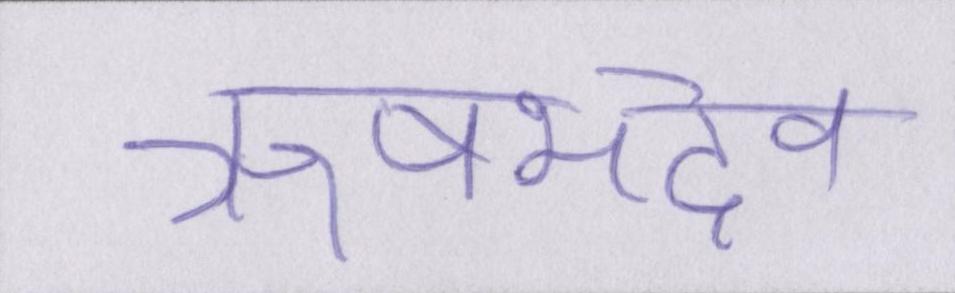 ऋषभदेव